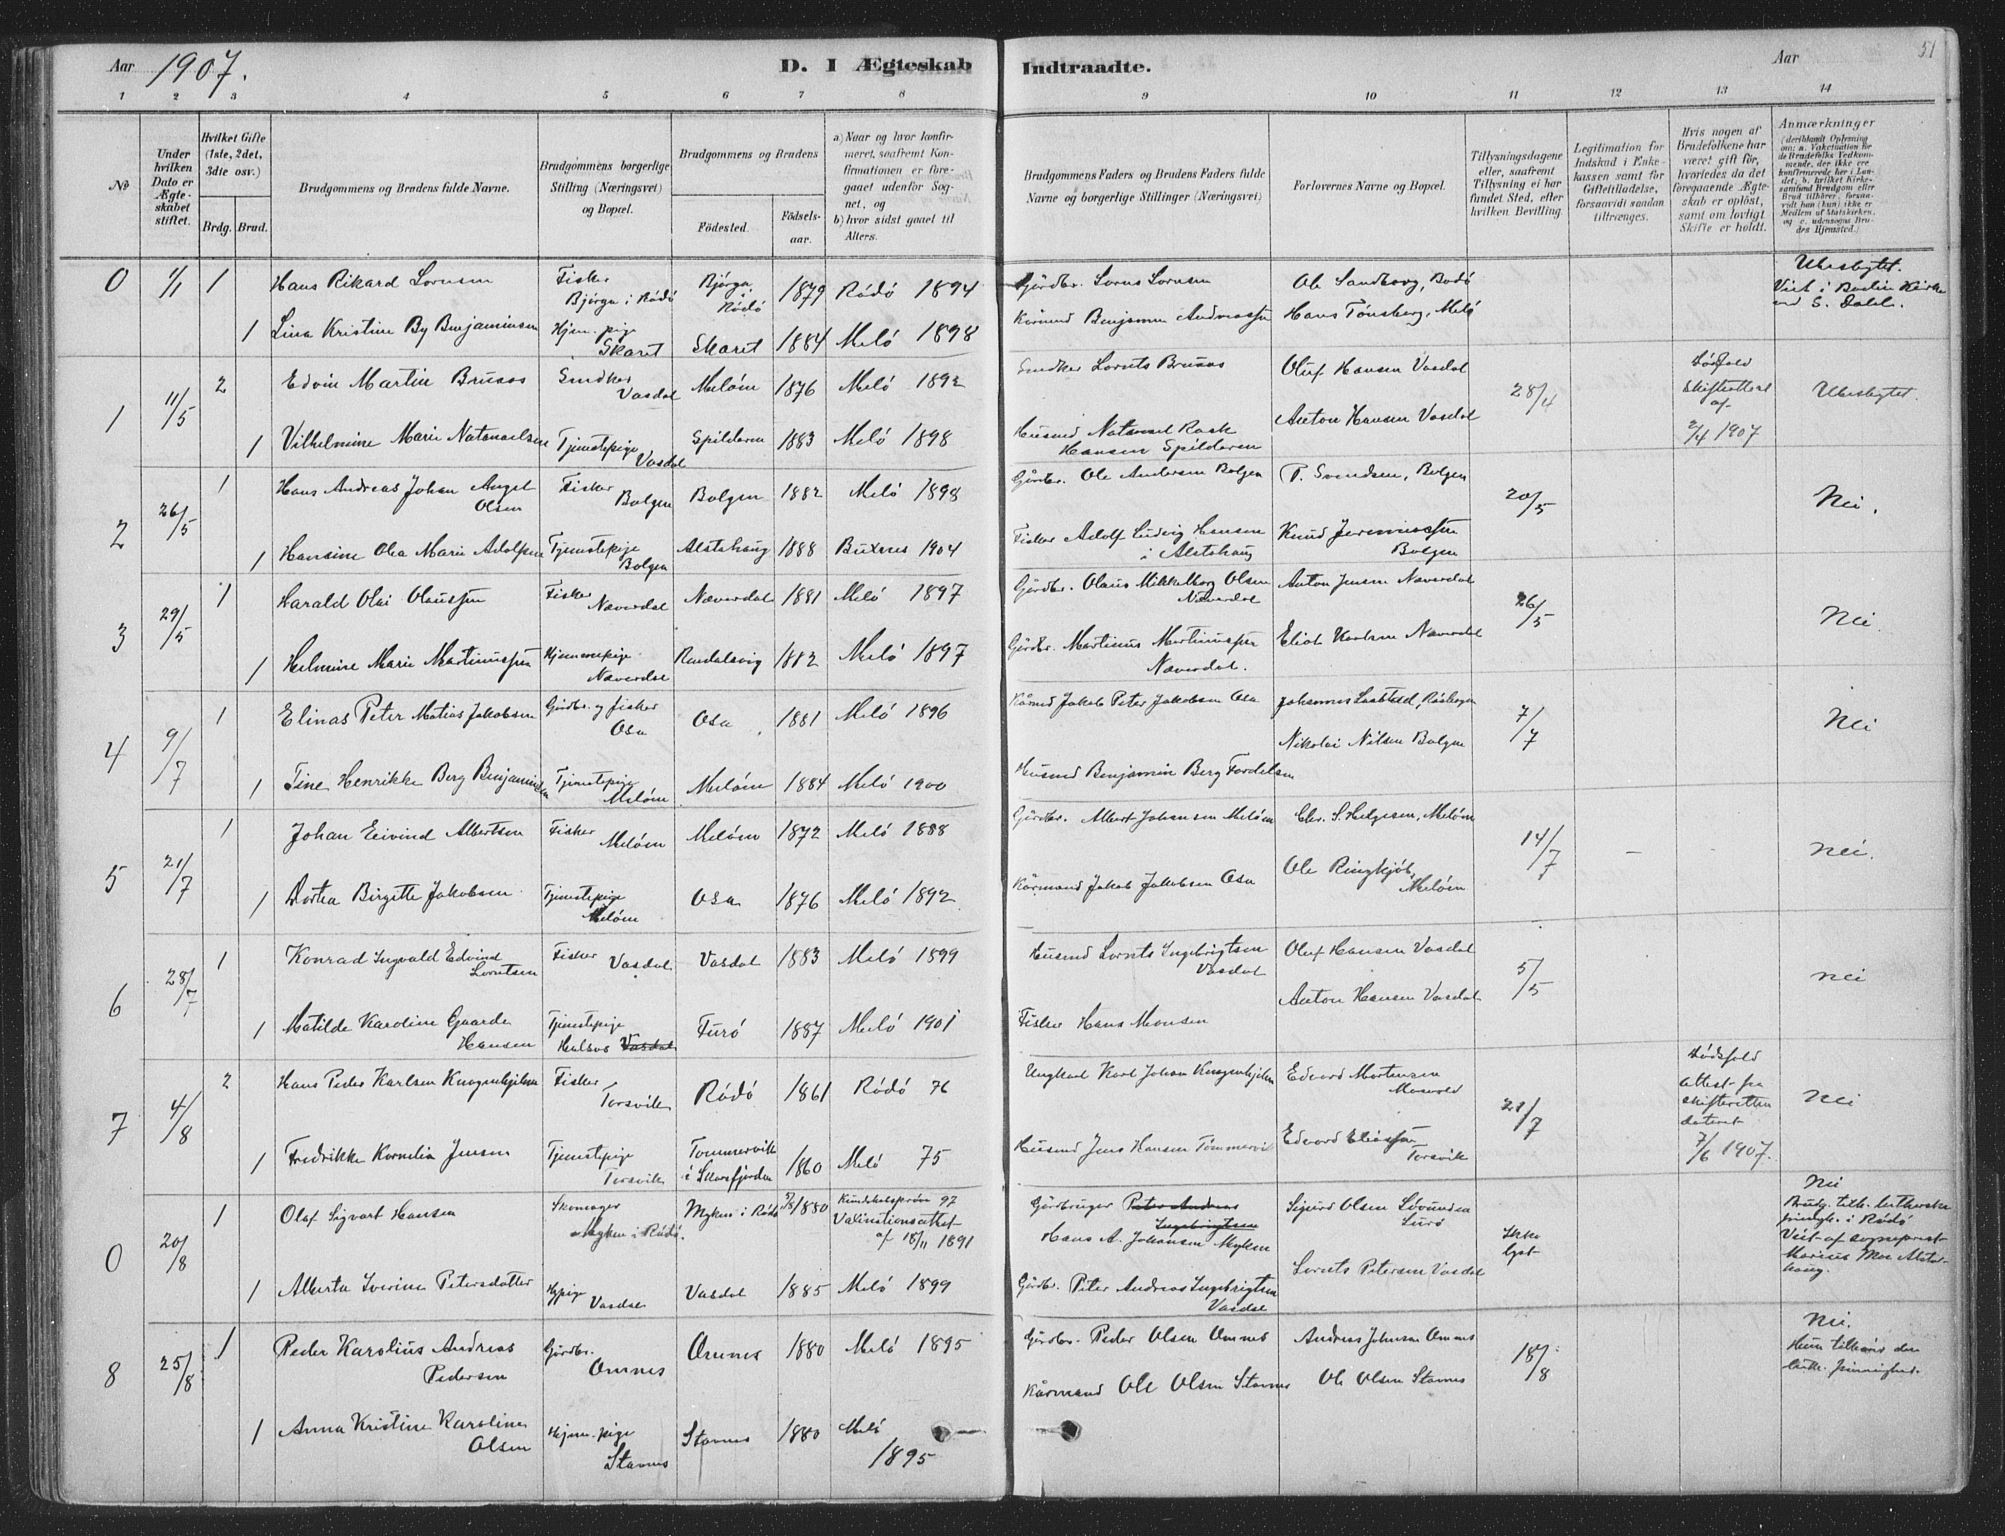 Aar 1907.
D. I Ægteskab Indtraadte.
Aar
51
1 2 3 4 5 6 7 8 9 10 11 12 13 14
No
Under hvilken Dato er Ægteskabet stiftet.
Hvilket Gifte (1ste, 2det, 3die osv.)
Brdg. Brud.
Brudgommens og Brudens fulde Navne.
Brudgommens borgerlige Stilling (Næringsvei) og Bopæl.
Brudgommens og Brudens
Fødested.
Fødselsaar.
a) Naar og hvor konfirmeret, saafremt Konfirmationen er foregaaet udenfor Sognet, og
b) hvor sidst gaaet til Alters.
Brudgommens Faders og Brudens Faders fulde Navne og borgerlige Stillinger (Næringsvei)
Forlovernes Navne og Bopæl.
Tillysningsdagene eller, saafremt Tillysning ei har fundet Sted, efter hvilken Bevilling.
Legitimation for Indskud i Enkekassen samt for Giftetilladelse, forsaavidt saadan tiltrænges.
Hvis nogen af Brudefolkene har været gift før, hvorledes da det foregaaende Ægteskab er opløst, samt om lovligt Skifte er holdt.
Anmærkninger (deriblandt Oplysning om: a. Vakcination for de Brudefolks Vedkommende, der ikke ere konfirmerede her i Landet; b. hvilket Kirkesamfund Brudgom eller Brud tilhører, forsaavidt han (hun) ikke er Medlem af Statskirken, og c. udensogns Brudes Hjemsted.)
0 1/1 1 Hans Rikard Lornsen Fisker Bjørga i Rödö Bjørga i Rödö 1879 Rödö 1894 Gårdbr. Lorns Lornsen Ole Sandberg, Bodö Ubeslygtet. Viet i Bodin Kirke ved S. Dahl.
1 Lina Kristine By Benjaminsen Hjem. pige Skaret Skaret 1884 Melö 1898 Kårmand Benjamin Andreassen Hans Tönsberg, Melö
1 11/5 2 Edvin Martin Bruaas Snedker Vasdal Melöen 1876 Melö 1892 Snedker Lornts Bruaas Oluf Hansen Vasdal 28/4 Dödsfald Skifteattest af 2/4 1907 Ubeslygtet.
1 Vilhelmine Marie Natanaelsen Tjenestepige Vasdal Spilderen 1883 Melö 1898 Husmd Natanael Rask Hansen Spilderen Anton Hansen Vasdal
2 26/5 1 Hans Andreas Johan Angel Olsen Fisker Bolgen Bolgen 1882 Melö 1898 Gårdbr. Ole Andersen Bolgen P. Svendsen, Bolgen 20/5 Nei.
1 Hansine Olea Marie Adolfsen Tjenestepige Bolgen Alstahaug 1888 Buxnes 1904 Fisker Adolf Ludvig Hansen i Alstahaug Knud Jeremiassen Bolgen
3 29/5 1 Harald Olai Olaussen Fisker Næverdal Næverdal 1881 Melö 1897 Gårdbr. Olaus Mikkelborg Olsen Næverdal Anton Jensen Næverdal 26/5 Nei.
1 Helmine Marie Martinussen Hjemmepige Næverdal Reindalsvig 1882 Melö 1897 Gårdbr. Martinus Martinussen Næverdal. Eliot Karlsen Næverdal
4 9/7 1 Elinas Peter Matias Jakobsen Gårdbr. og fisker Osa Osa 1881 Melö 1896 Kårmd Jakob Peter Jakobsen Osa Johannes 7/7 Nei
1 Tine Henrikke Berg Benjaminsen Tjenestepige Melöen Melöen 1884 Melö 1900 Husmd Benjamin Berg Fordelsen Nikolai Nilsen Bolgen
5 21/7 1 Johan Eivind Albertsen Fisker Melöen Melöen 1872 Melö 1888 Gårdbr. Albert Johansen Melöen Chr. S. Helgesen, Melöen 14/7 – Nei.
1 Dortea Birgitte Jakobsen Tjenestepige Melöen Osa 1876 Melö 1892 Kårmand Jakob Jakobsen Osa Ole Ringkjöb, Melöen
6 28/7 1 Konrad Ingvald Edvind Lorntsen Fisker Vasdal Vasdal 1883 Melö 1899 Husmd Lornts Ingebrigtsen Vasdal Oluf Hansen Vasdal 5/5 Nei
1 Matilde Karoline Gaarde Hansen Tjenestepige Halsos Vasdal Furö 1887 Melö 1901 Fisker Hans Monsen Anton Hansen Vasdal
7 4/8 2 Hans Peder Karlsen Knagenhjelm Fisker Torsvik Rödö 1861 Rödö 76 Ungkarl Karl Johan Knagenhjelm Edvard Mortensen Mosvold 21/7 Dödsfald attest fra skifteretten dateret 7/6 1907. Nei
1 Fredrikke Kornelia Jensen Tjenestepige Torsvik Tommervik i Skarsfjorden 1860 Melö 75 Husmd Jens Hansen Tömmervik Edvard Eliassen Torsvik
0 20/8 1 Olaf Sigvart Hansen Skomager Myken i Rödö. Myken i Rödö 1880 Kundskabsprøve 97 Vaxinationsattest af 18/11 1891 Gårdbruger Peter Andreas Ingebrigtsen Hans A. Johansen Myken Sigurd Olsen Lövunden Lurö Ikke lyst Nei Brudg. tilh. lutherske frimgh. i Rödö Viet af sogneprest Marius Moe Alstahaug.
1 Alberta Severine Petersdatter Hjpige Vasdal Vasdal 1885 Melö 1899 Gårdbr. Peter Andreas Ingebrigtsen Vasdal Lornts Petersen Vasdal
8 25/8 1 Peder Karolius Andreas Pedersen Gårdbr. Ornnes Ornnes 1880 Melö 1895 Gårdbr. Peder Olsen Ornnes Andreas Johnsen Ornnes 18/8 Nei. Hun tilhører den luth. frimenighed.
1 Anna Kristine Karoline Olsen Hjem. pige Stavnes Stavnes 1880 Melö 1895 Kårmand Ole Olsen Stavnes Ole Olsen Stavnes